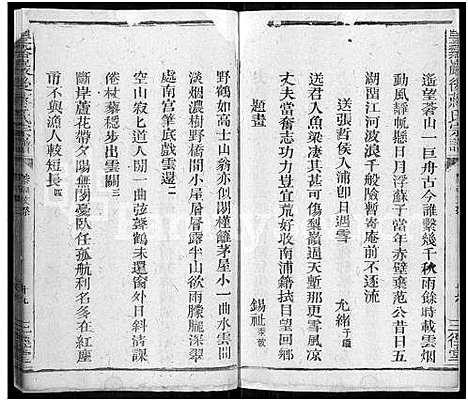 遙望蒼山一巨舟古今誰繫幾千秋雨餘時載雲烟
動風靜帆懸日月浮蘇子當年赤壁棄范公昔日五
湖遊江河波浪千般險暫寄庵前不要愁
送張哲侯入浦卽日遇雪 允緒
遊人魚梁淒其甚可傷梨嶺過天半那更雪風凉
丈夫當奮志功力豈宜荒好收南浦籍拭目望回鄉
題畫 錫祉
野鶴如高士山翁亦似閒槿籬茅屋小一曲水雲間
淡烟濃樹野橋關小屋層層露半山欲雨朦朧深翠
處南宮筆底戲雲還二
空山寂匕道人閒一曲弦聲鶴未還窗外日斜清課
倦杖藜穩步出雲關三
斷岸蘆花帶夕陽無關憂臥任孤航利名多在紅塵
甫不與漁人較短長四
三徑堂